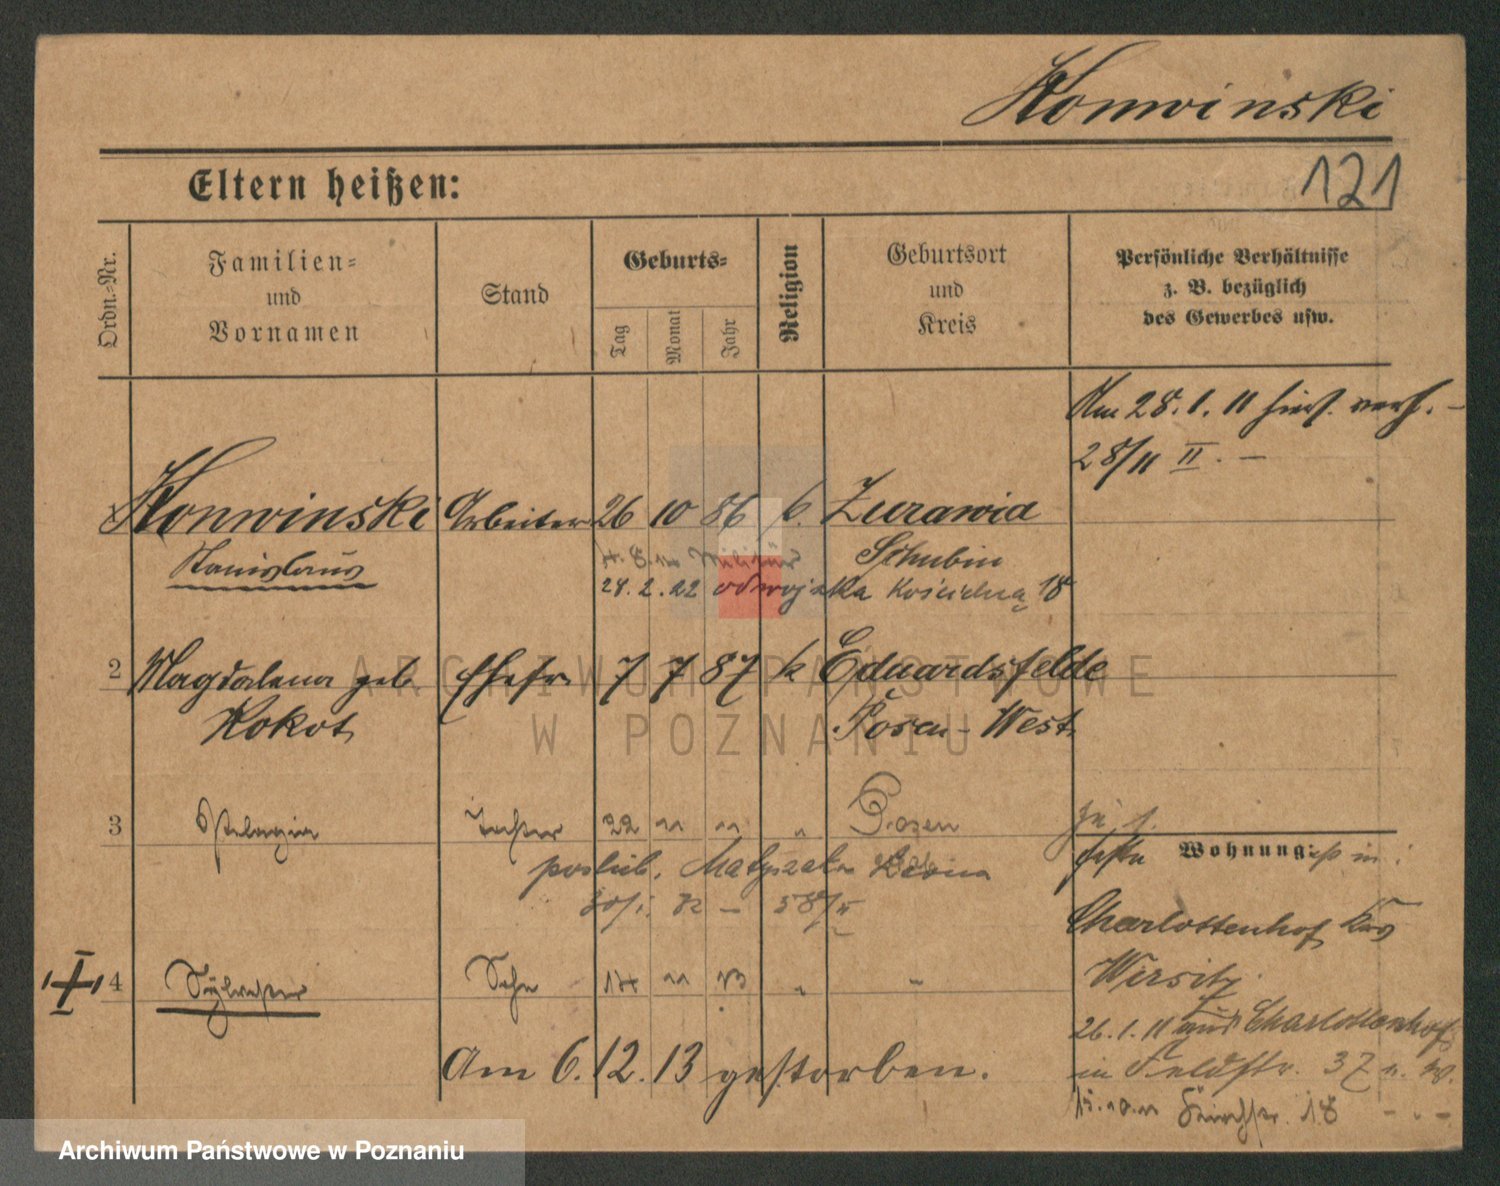 Konwinski
121
Eltern heißen:
Ordn.-Nr.
Familien-
und
Vornamen
Stand
Geburts-
Tag
Monat
Jahr
Religion
Geburtsort
und
Kreis
Persönliche Verhältnisse
z. B. bezüglich
des Gewerbes usw.
Am 28.1.11 hier verh. -
28/11 II. -
Konwinski Arbeiter 26 10 86 k. Zurawia
Stanislaus Schubin
Militär
28.2.22 od wojska Kościelna 18
2 Magdalena geb Ehefr. 7 7 87 k Eduardsfelde
Kokot Posen-West
3 Pelagia Tochter 22 11 11 " Posen
poslub. Matyszak
4 Sylvester Sohn 14 11 13 " "
Am 6.12.13 gestorben.
Wohnung:
Charlottenhof Krs
Wirsitz
26.1.11 aus Charlottenhof
in Feldstr. 37
15.10.11 18
ARCHIWUM PAŃSTWOWE
W POZNANIU
Archiwum Państwowe w Poznaniu